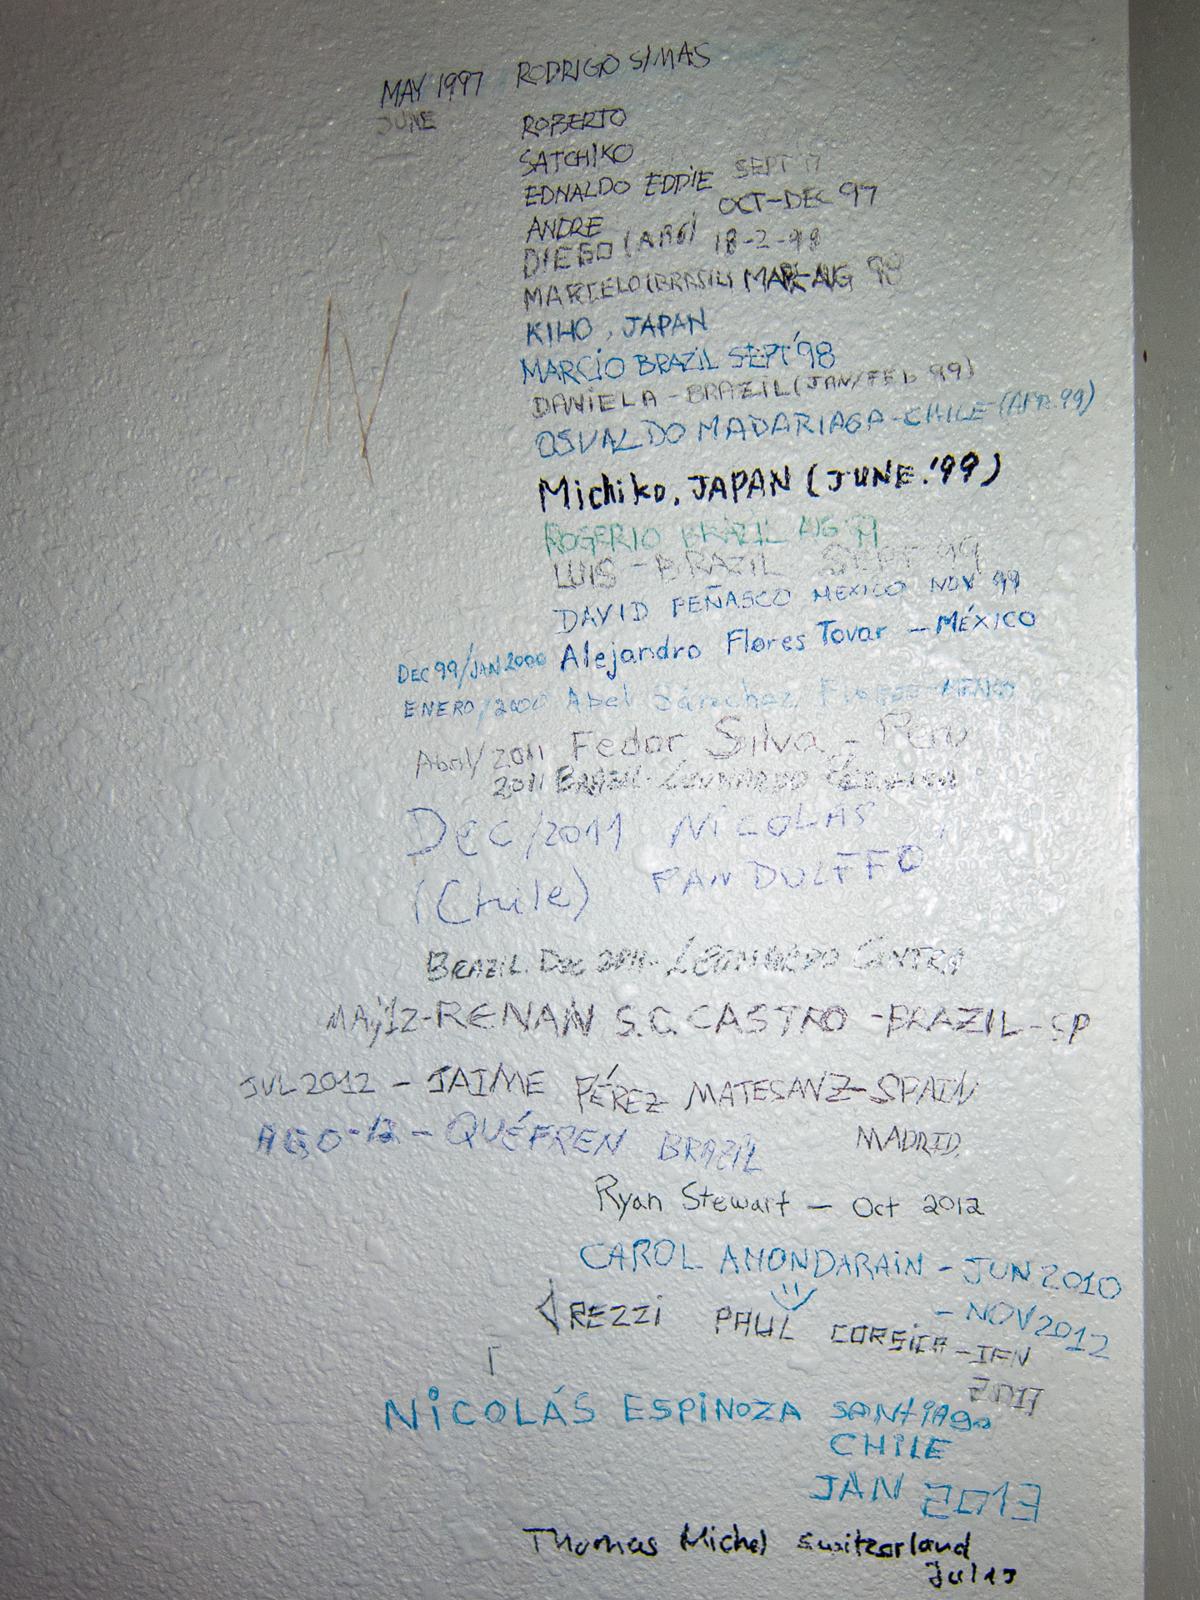 MAY 1997 RODRIGO SIMAS
JUNE ROBERTO
SATCHIKO
EDNALDO EDDIE SEPT 97
ANDRE OCT-DEC 97
DIEGO (ARG) 18-2-98
MARCELO (BRASIL) MAR-AUG 98
KIHO, JAPAN
MARCIO BRAZIL SEPT'98
DANIELA - BRAZIL (JAN/FEB 99)
OSVALDO MADARIAGA - CHILE (APR.99)
Michiko, JAPAN (JUNE.'99)
ROGERIO BRAZIL AUG 99
LUIS - BRAZIL SEPT 99
DAVID PEÑASCO MEXICO NOV 99
DEC 99/JAN 2000 Alejandro Flores Tovar - MÉXICO
ENERO/2000 Abel Sánchez Flores - MÉXICO
Abril/2011 Fedor Silva - Peru
2011 BRAZIL - LEONARDO
Dec/2011 NICOLAS
(Chile) PANDOLFFO
BRAZIL. Dec 2011 - LEONARDO CINTRA
MAY'12 - RENAN S.C. CASTRO - BRAZIL - SP
JUL 2012 - JAIME PÉREZ MATESANZ - SPAIN
MADRID.
AGO-12 - QUÉFREN BRAZIL
Ryan Stewart - Oct 2012
CAROL AMONDARAIN - JUN 2010
- NOV 2012
AREZZI PAUL CORSICA - IFN
2011
NICOLÁS ESPINOZA SANTIAGO
CHILE
JAN 2013
Thomas Michel Switzerland
Jul 13